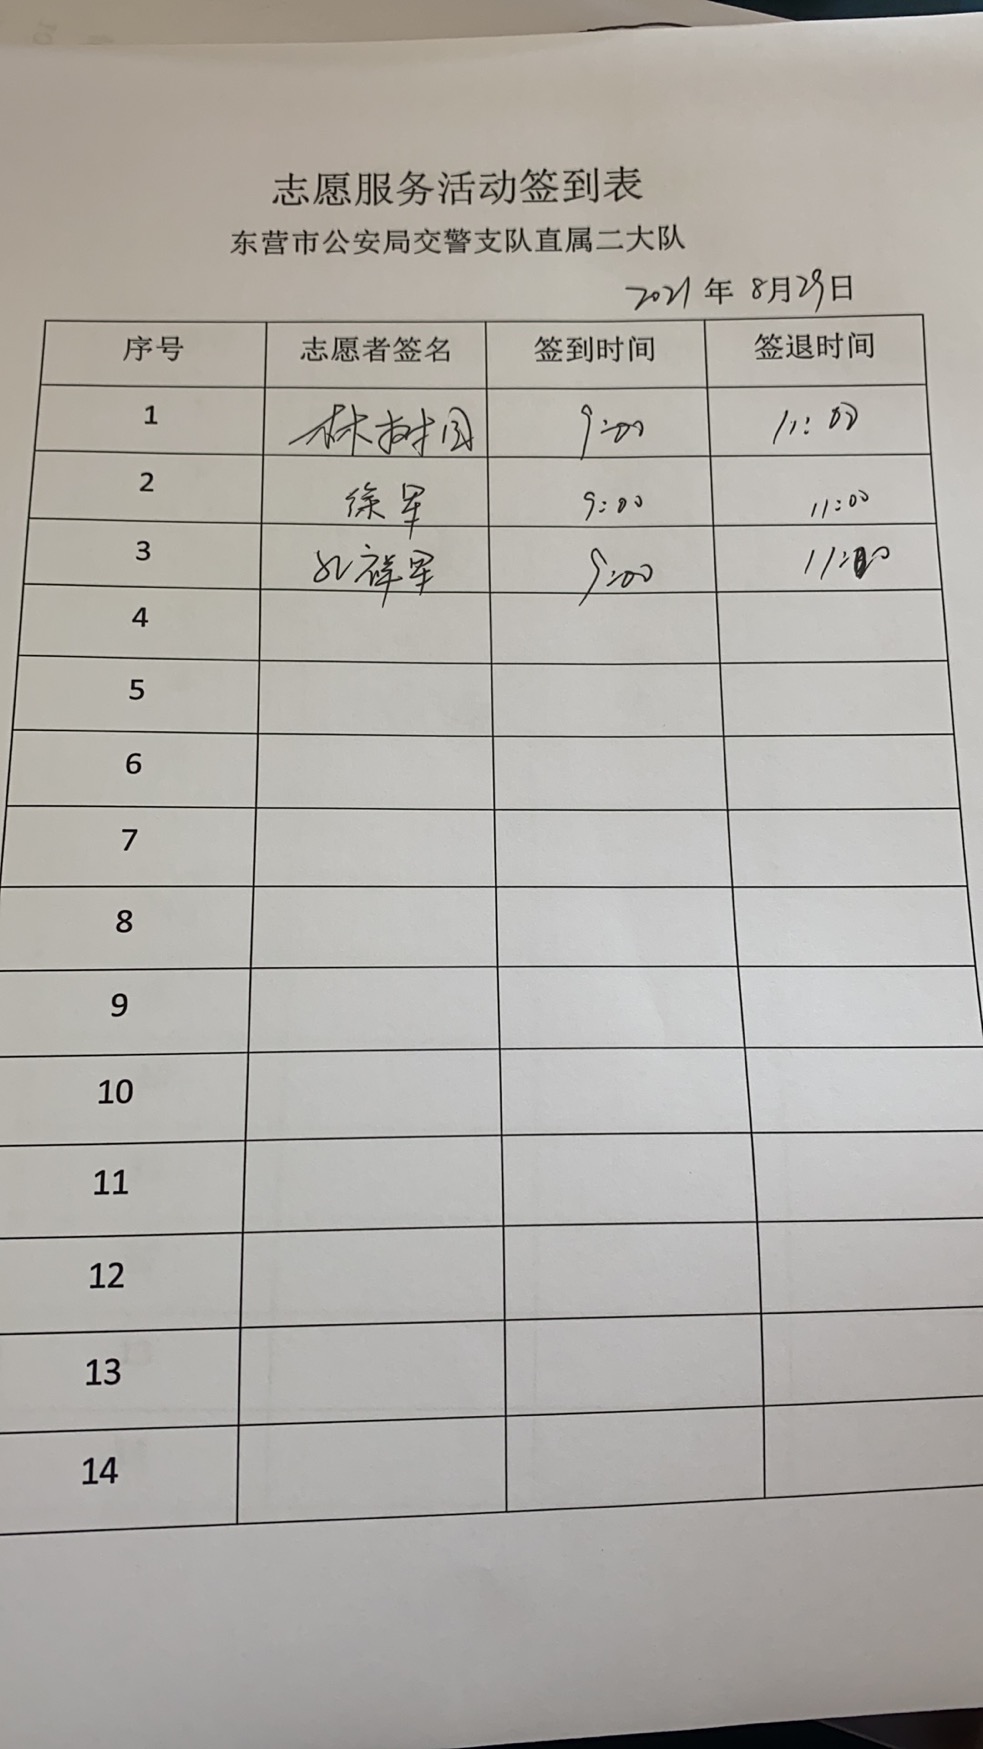 志愿服务活动签到表
东营市公安局交警支队直属二大队
2021年8月29日
序号 志愿者签名 签到时间 签退时间
1 林树国 9:00 11:00
2 徐军 9:00 11:00
3 祥军 9:00 11:00
4
5
6
7
8
9
10
11
12
13
14